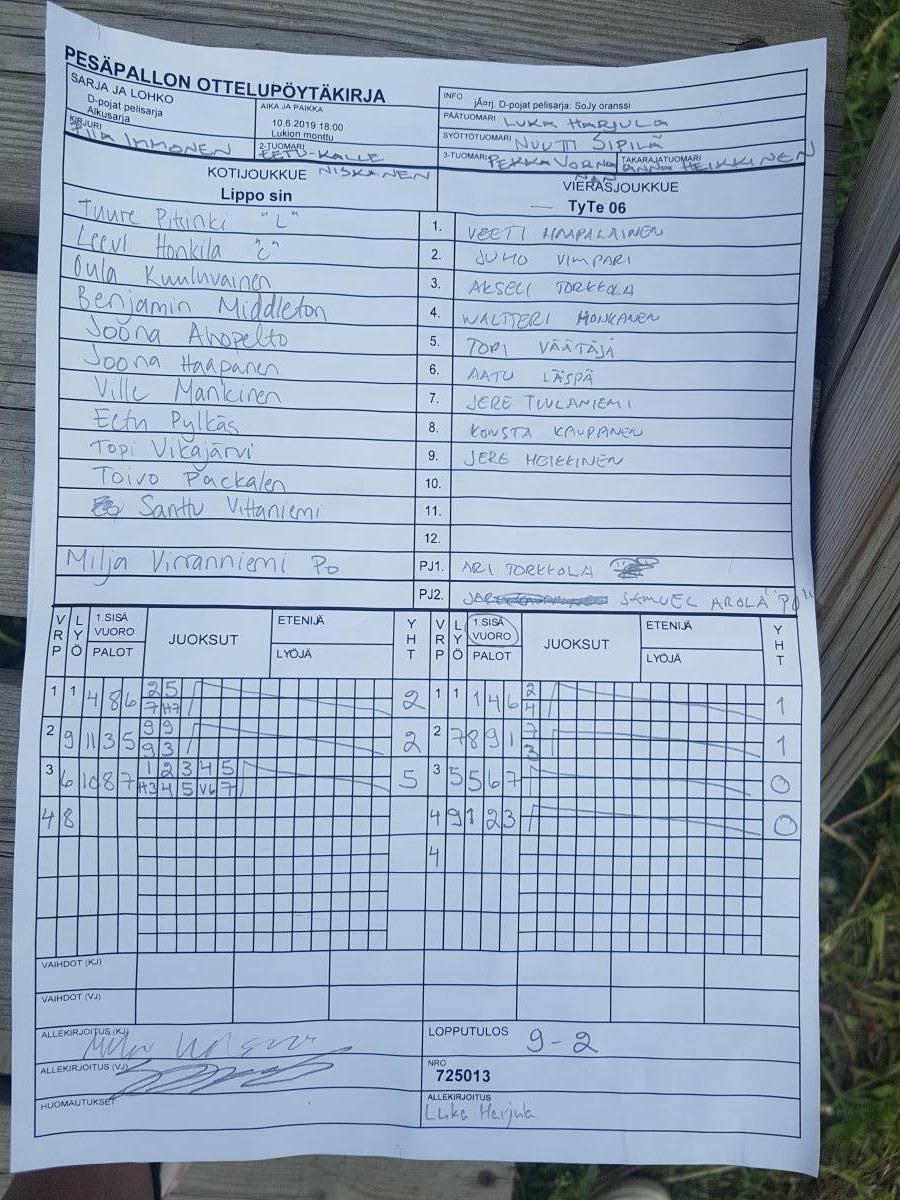 PESÄPALLON OTTELUPÖYTÄKIRJA
SARJA JA LOHKO
D-pojat pelisarja
Alkusarja
AIKA JA PAIKKA
10.6.2019 18:00
Lukion monttu
INFO jÄ¤rj. D-pojat pelisarja: SoJy oranssi
PÄÄTUOMARI LUKA HARJULA
SYÖTTÖTUOMARI NUUTTI SIPILÄ
KIRJURI INMONEN
2-TUOMARI EETU-KALLE NISKANEN
3-TUOMARI PEKKA
TAKARAJATUOMARI HEIKKINEN
KOTIJOUKKUE
Lippo sin
VIERASJOUKKUE
TyTe 06
Tuure Pitinki "L" 1. VEETI HAAPALAINEN
Leevi Honkila "C" 2. JUHO VIMPARI
Oula Kuuluvainen 3. AKSELI TORKKOLA
Benjamin Middleton 4. WALTTERI HONKANEN
Joona Ahopelto 5. TOPI VÄÄTÄJÄ
Joona Haapanen 6. AATU LÄSPÄ
Ville Mankinen 7. JERE TUULANIEMI
Eetu Pylkäs 8. KONSTA KAUPPANEN
Topi Vikajärvi 9. JERE HEIKKINEN
Toivo Packalen 10.
Santtu Vittaniemi 11.
12.
Milja Virranniemi PO PJ1. ARI TORKKOLA
PJ2. SAMUEL AROLA "PO"
VRP LYÖ 1.SISÄ VUORO PALOT JUOKSUT ETENIJÄ LYÖJÄ YHT VRP LYÖ 1.SISÄ VUORO PALOT JUOKSUT ETENIJÄ LYÖJÄ YHT
1 1 4 8 6 2 5 2 1 1 1 4 6 2 1
7 H7 4
2 9 11 3 5 9 9 2 2 7 8 9 1 7 1
9 3 3
3 6 10 8 7 1 2 3 4 5 5 3 5 5 6 7 0
H3 4 5 V6 7
4 8 4 9 1 2 3 0
4
VAIHDOT (KJ)
VAIHDOT (VJ)
ALLEKIRJOITUS (KJ)
LOPPUTULOS 9-2
ALLEKIRJOITUS (VJ)
NRO
725013
HUOMAUTUKSET
ALLEKIRJOITUS
Luka Harjula